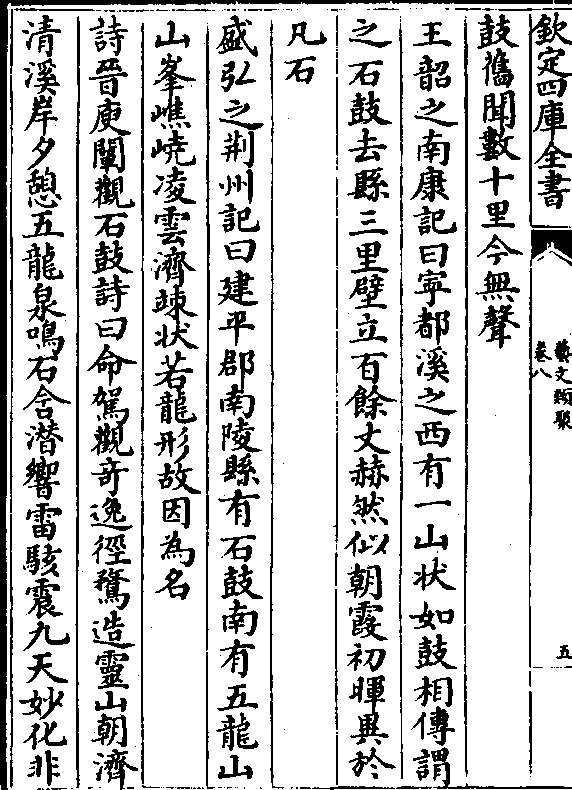 欽定四庫全書
藝文類聚
卷八
五
鼓舊聞數十里今無聲
王韶之南康記曰寧都溪之西有一山状如鼓相傳謂
之石鼓去縣三里壁立百餘丈赫然似朝霞初暉異於
凡石
盛弘之荆州記曰建平郡南陵縣有石鼓南有五龍山
山峯嶕嶢凌雲濟竦状若龍形故因為名
詩晉庾闡觀石鼓詩曰命駕觀奇逸徑騖造靈山朝濟
清溪岸夕憩五龍泉鳴石含潜響雷駭震九天妙化非